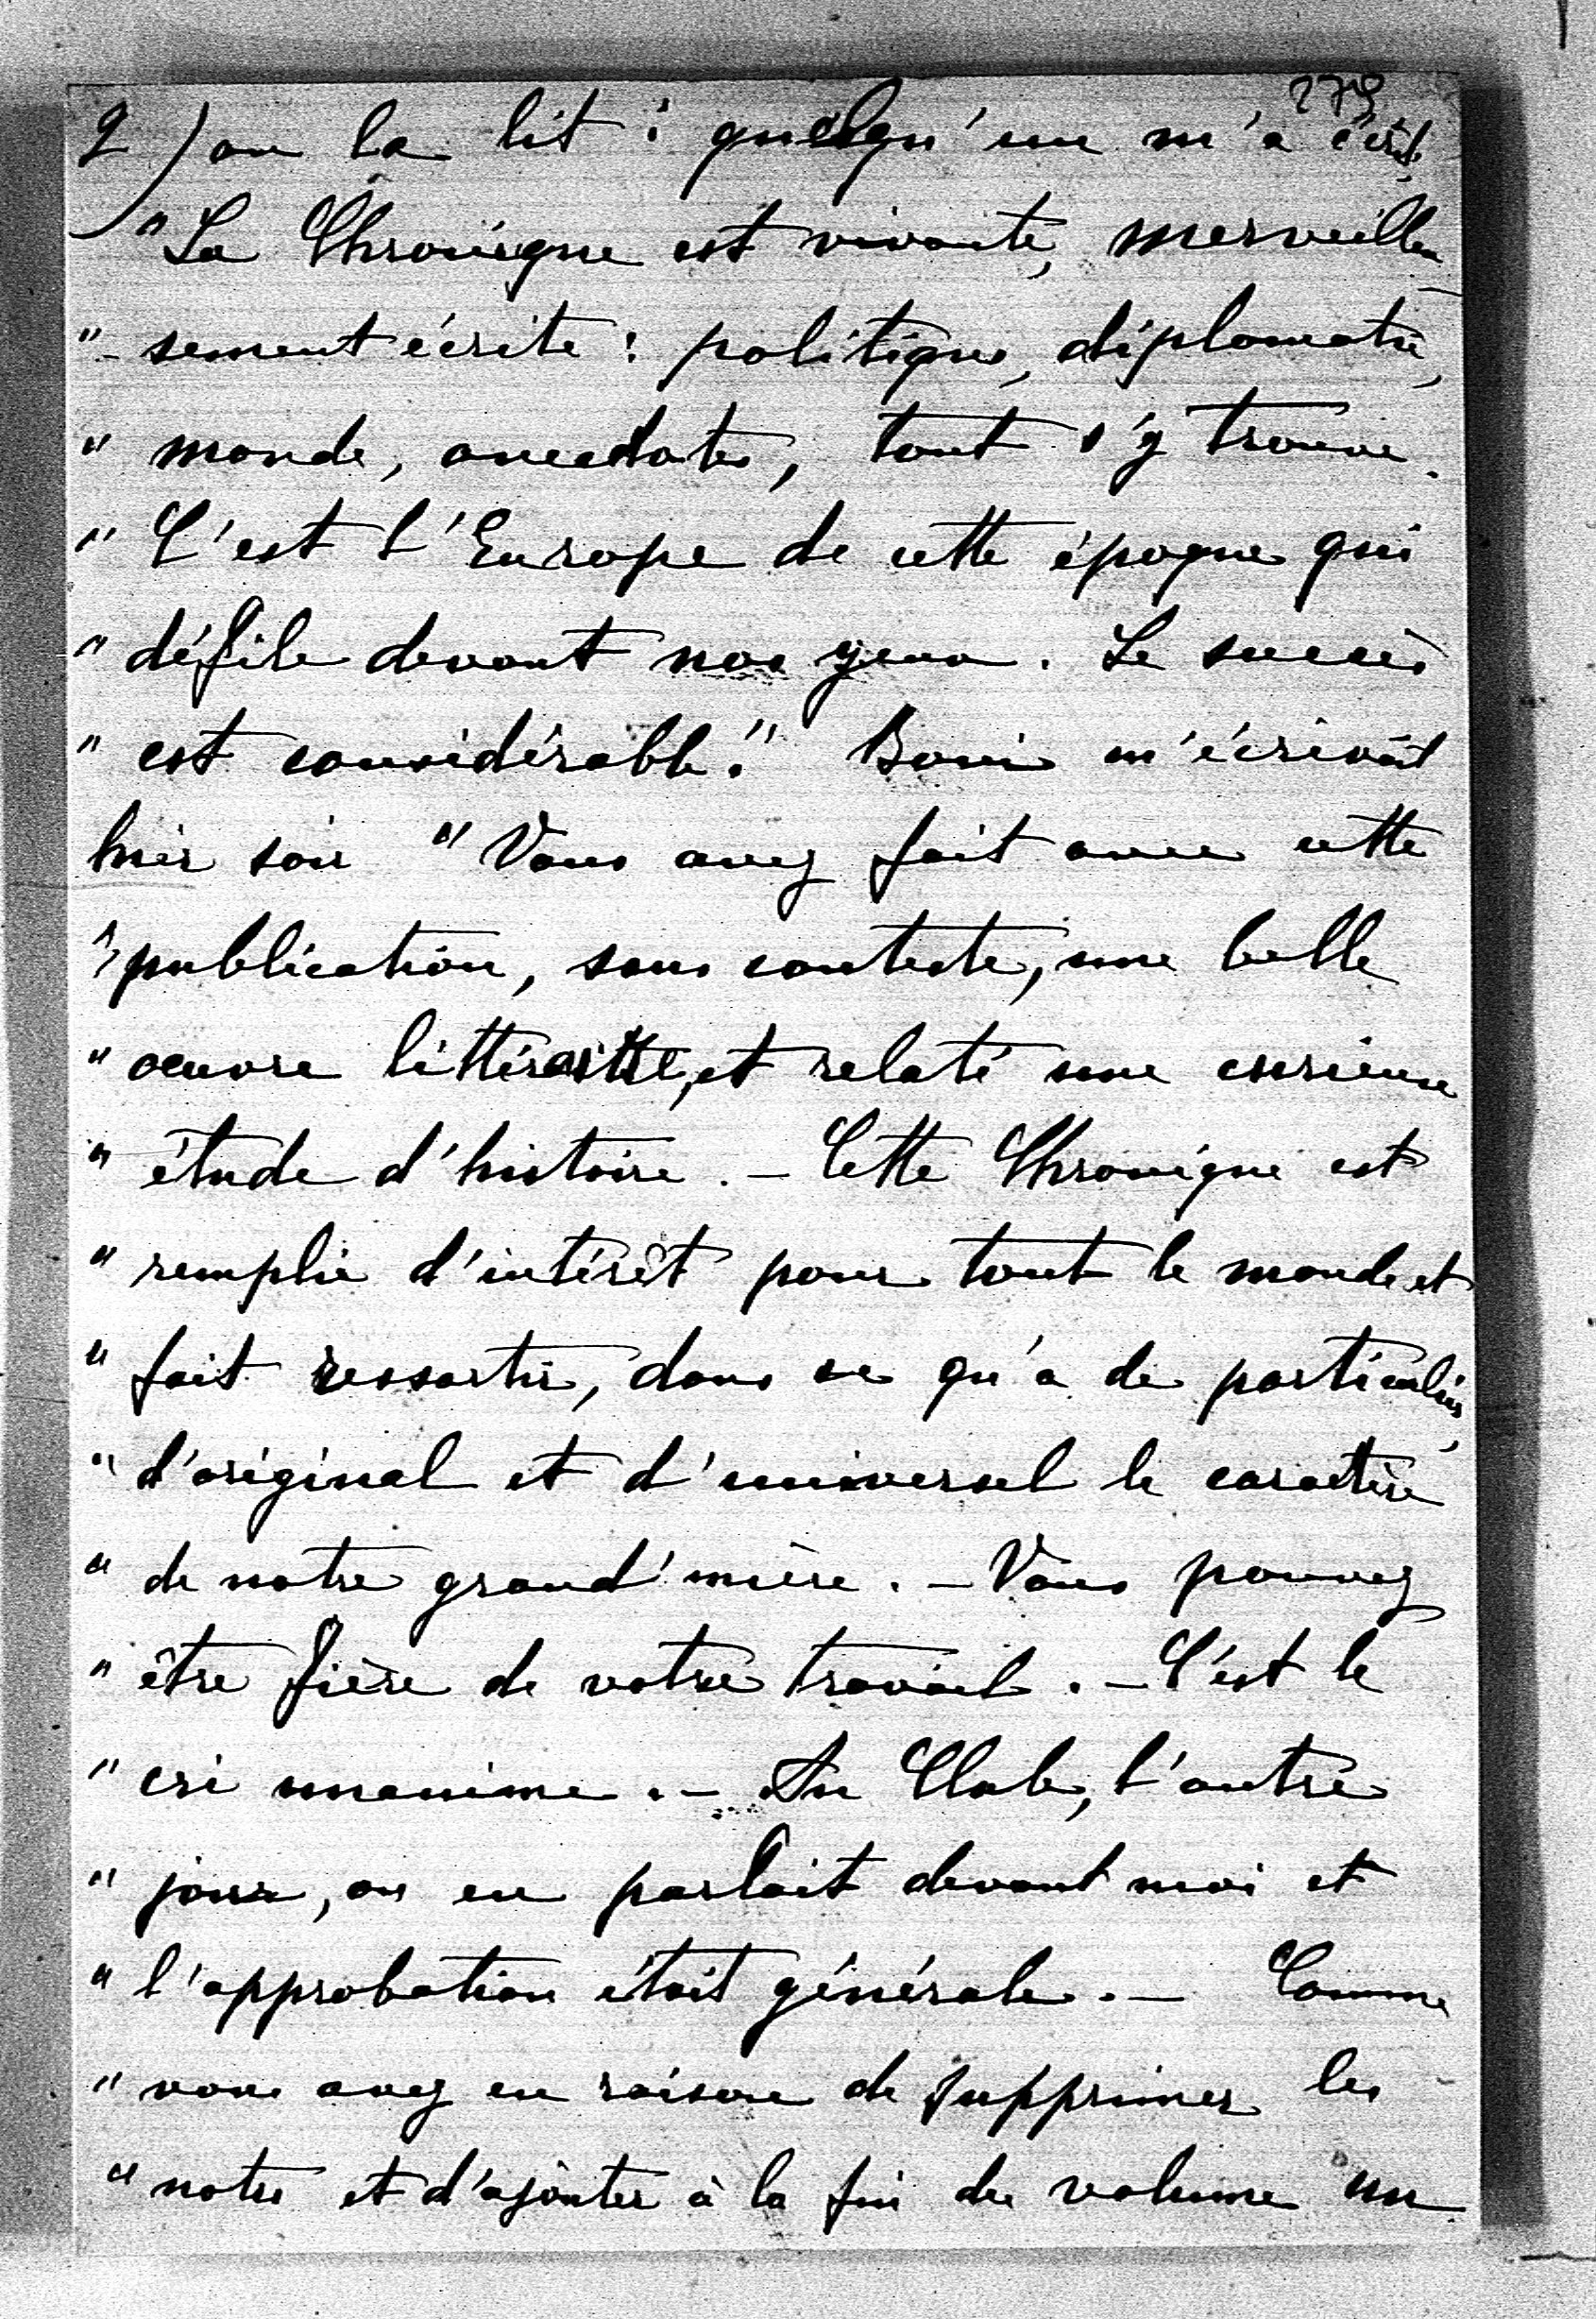 279
2) on la lit : quelqu'un m'a écrit,
"La Chronique est vivante, merveilleu
"-sement écrite : politique, diplomatie,
" monde, anecdotes, tout s'y trouve.
" C'est l'Europe de cette époque qui
" défile devant nos yeux. Le succès
" est considérable." Boni m'écrivait
hier soir "Vous avez fait avec cette
" publication, sans conteste, une belle
" oeuvre littéraire, et relaté une curieuse
" étude d'histoire. - Cette Chronique est
" remplie d'intérêt pour tout le monde et
" fait ressortir, dans ce qu'a de particulier,
" d'original et d'universel le caractère
" de notre grand'mère. - Vous pouvez
" être fière de votre travail. - C'est le
" cri unanime. - Au Club, l'autre
" jour, on en parlait devant moi et
" l'approbation était générale. - Comme
" vous avez eu raison de supprimer les
" notes et d'ajouter à la fin du volume un